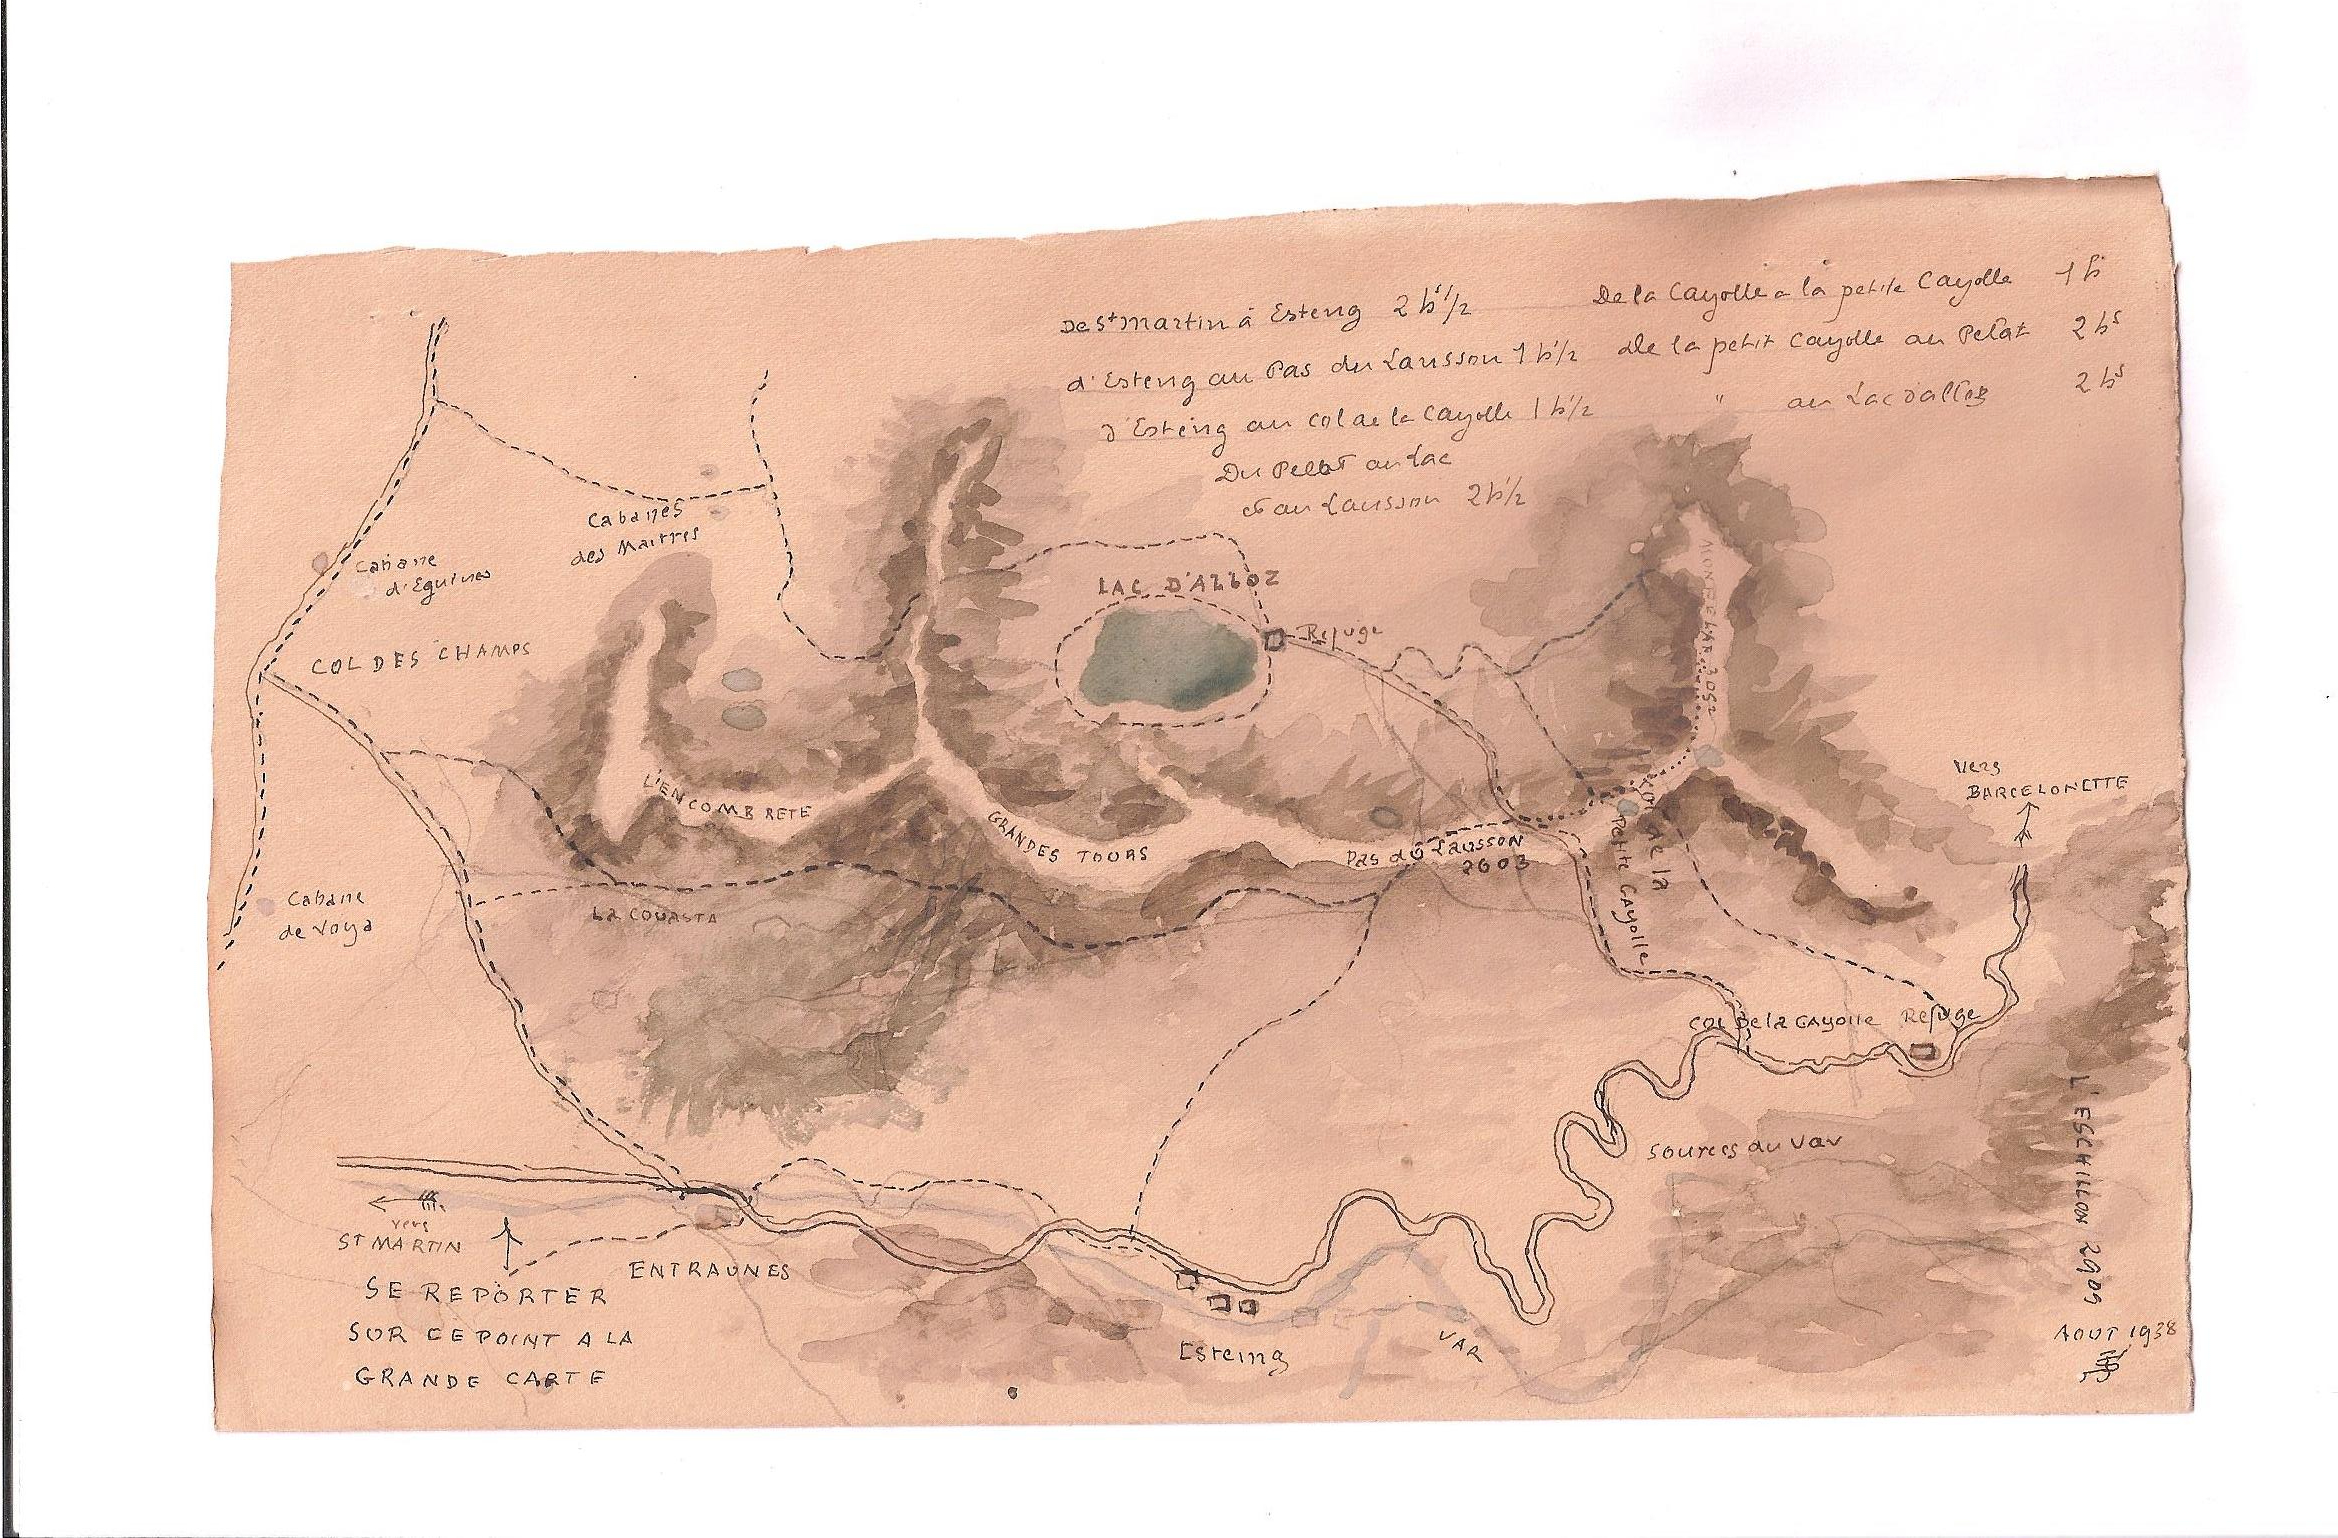 De St Martin à Esteng 2 h 1/2
d'Esteng au Pas du Lausson 1 h 1/2
d'Esteng au col de la Cayolle 1 h 1/2
Du Pelat au Lac
et au Lausson 2 h 1/2
De la Cayolle a la petite Cayolle 1 h
De la petit Cayolle au Pelat 2 hs
" au Lac d'allos 2 hs
Cabanes
des Maitres
Cabane
d'Eguines
COL DES CHAMPS
LAC D'ALLOZ
Refuge
MONT PELAT 3052
L'ENCOMBRETE
GRANDES TOURS
Pas du Lausson
2603
Col de la
Petite Cayolle
vers
BARCELONETTE
Cabane
de Voya
La COUASTA
COL De la CAyolle Refuge
Sources du Var
L'ESCHILLON 2909
vers
ST MARTIN
SE REPORTER
SUR CE POINT A LA
GRANDE CARTE
ENTRAUNES
Esteing
VAR
AOUT 1938